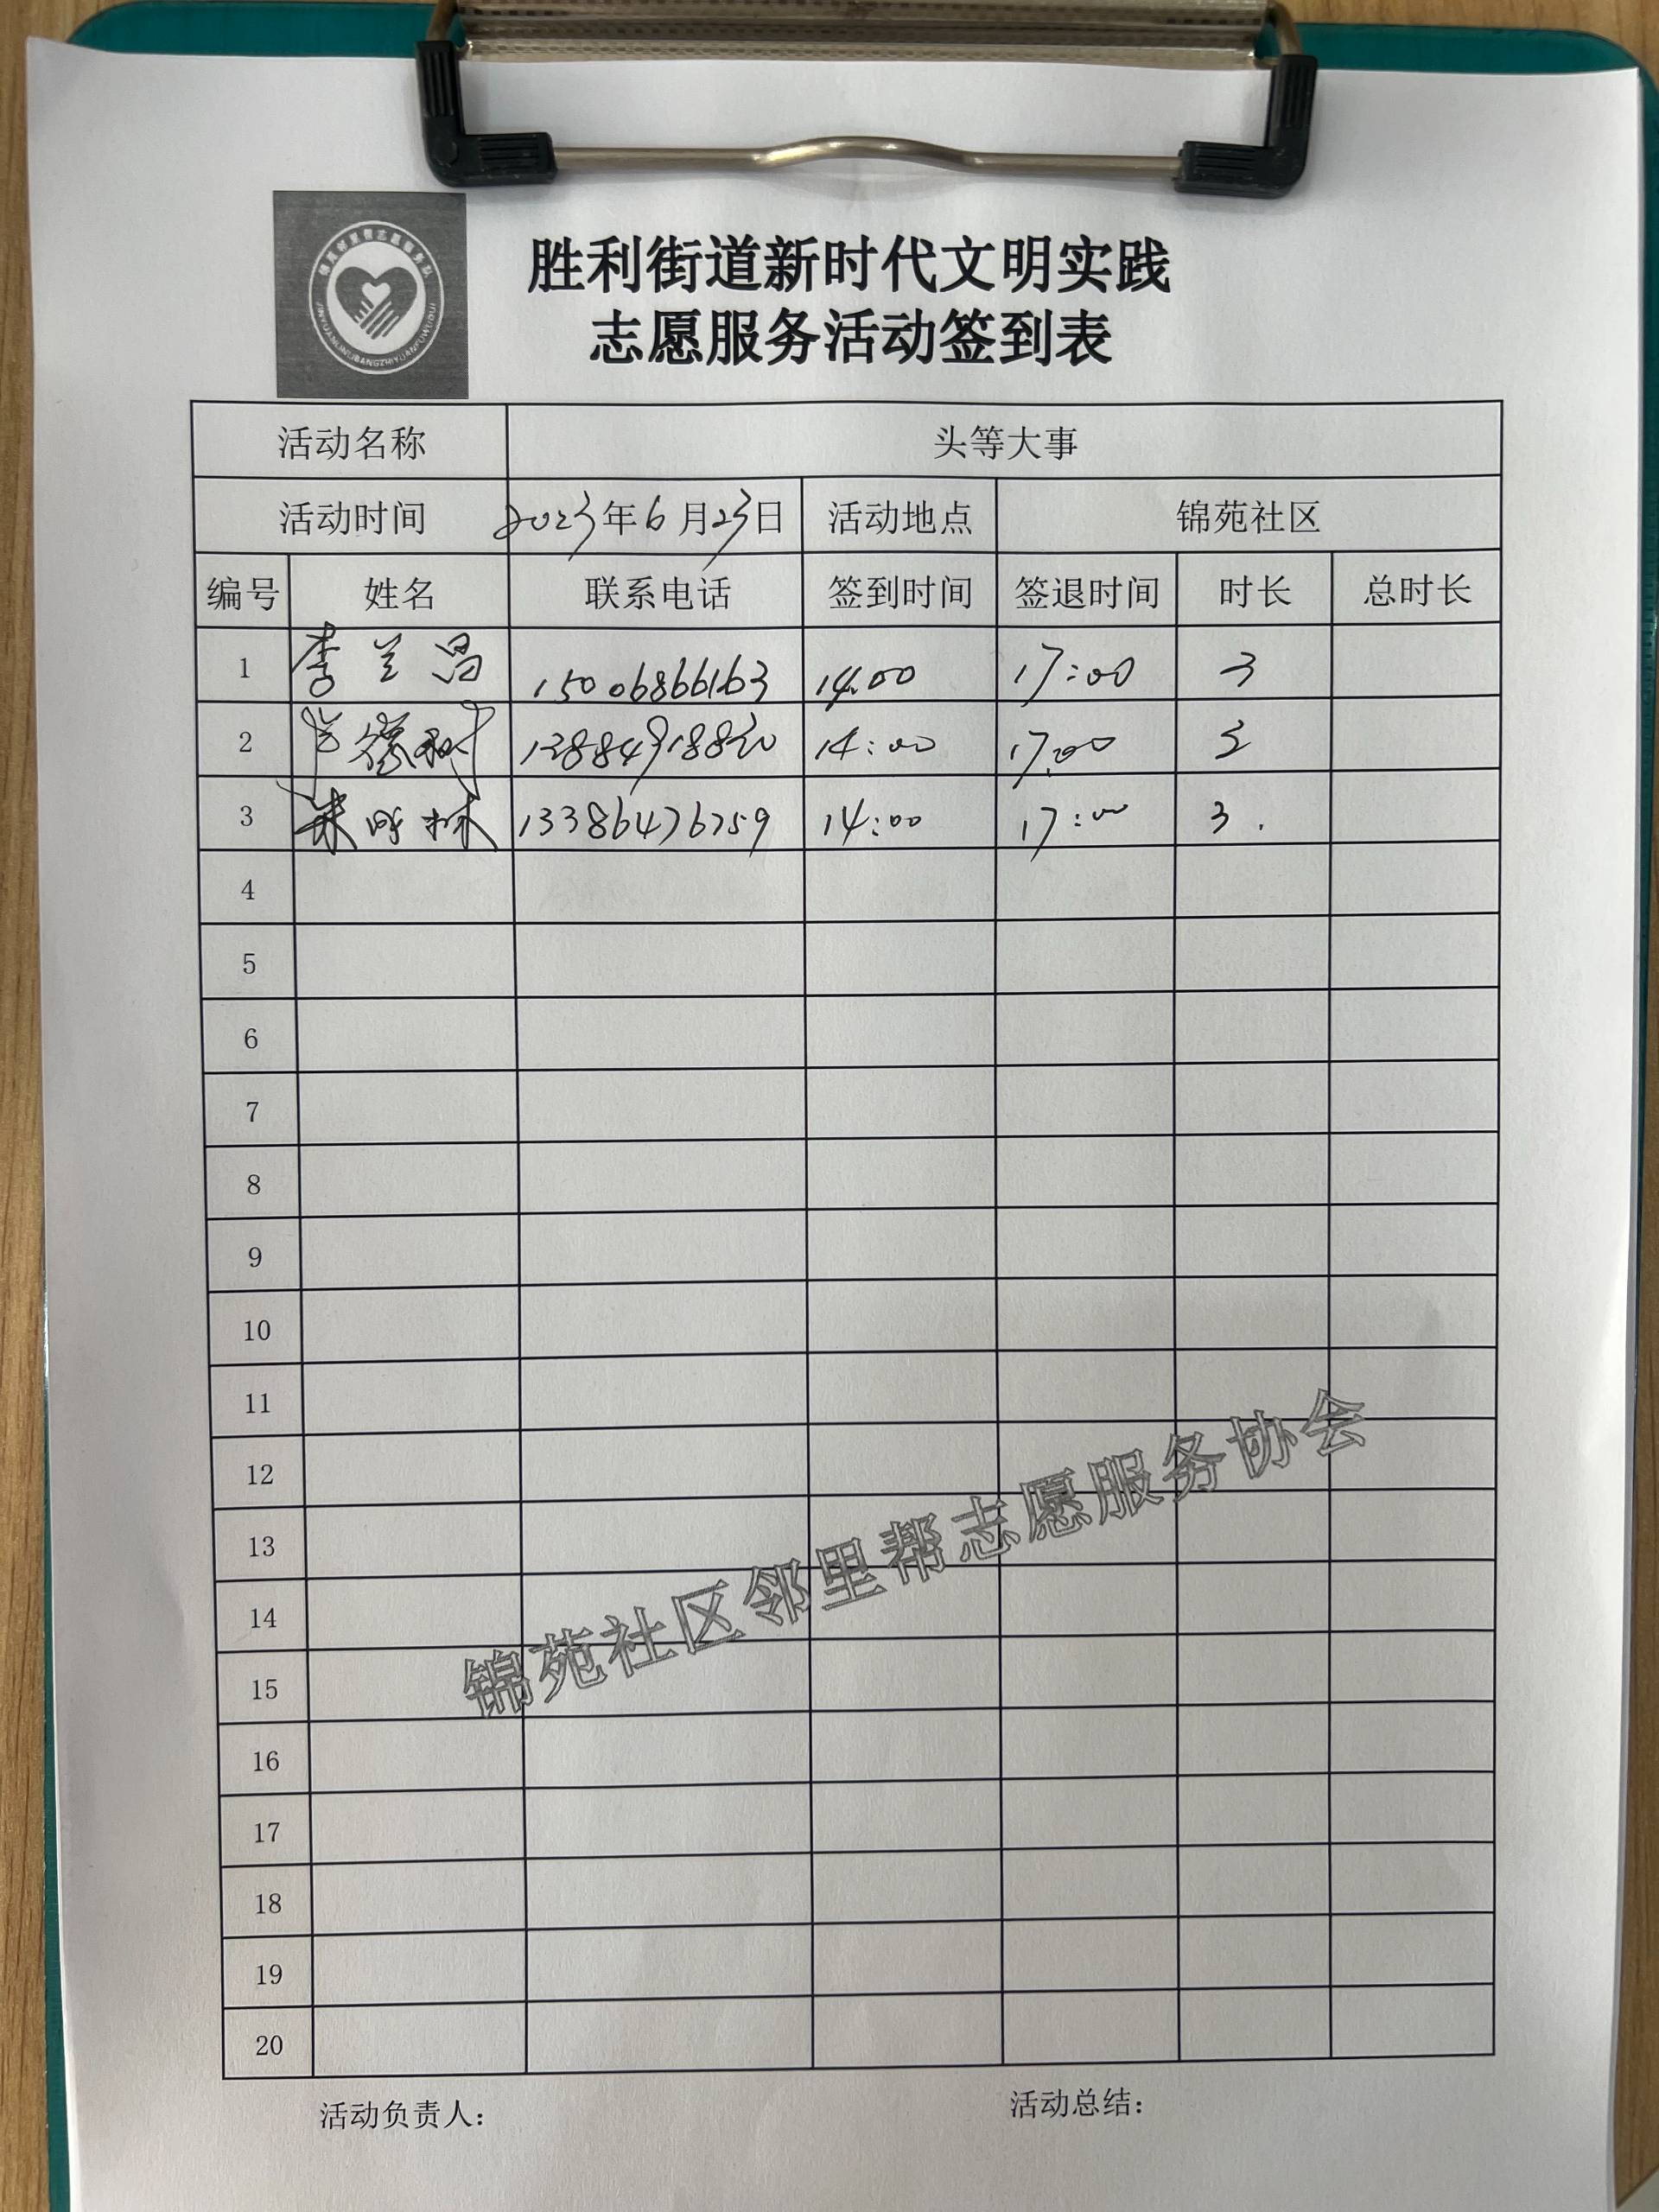 锦苑邻里帮志愿服务队
JINYUANLINLIBANGZHIYUANFUWUDUI
胜利街道新时代文明实践
志愿服务活动签到表
活动名称 头等大事
活动时间 2023年6月23日 活动地点 锦苑社区
编号 姓名 联系电话 签到时间 签退时间 时长 总时长
1 李兰昌 15006866163 14:00 17:00 3
2 13884918830 14:00 17:00 3
3 13386476759 14:00 17:00 3.
4
5
6
7
8
9
10
11
12
13
14
15
16
17
18
19
20
锦苑社区邻里帮志愿服务协会
活动负责人： 活动总结：